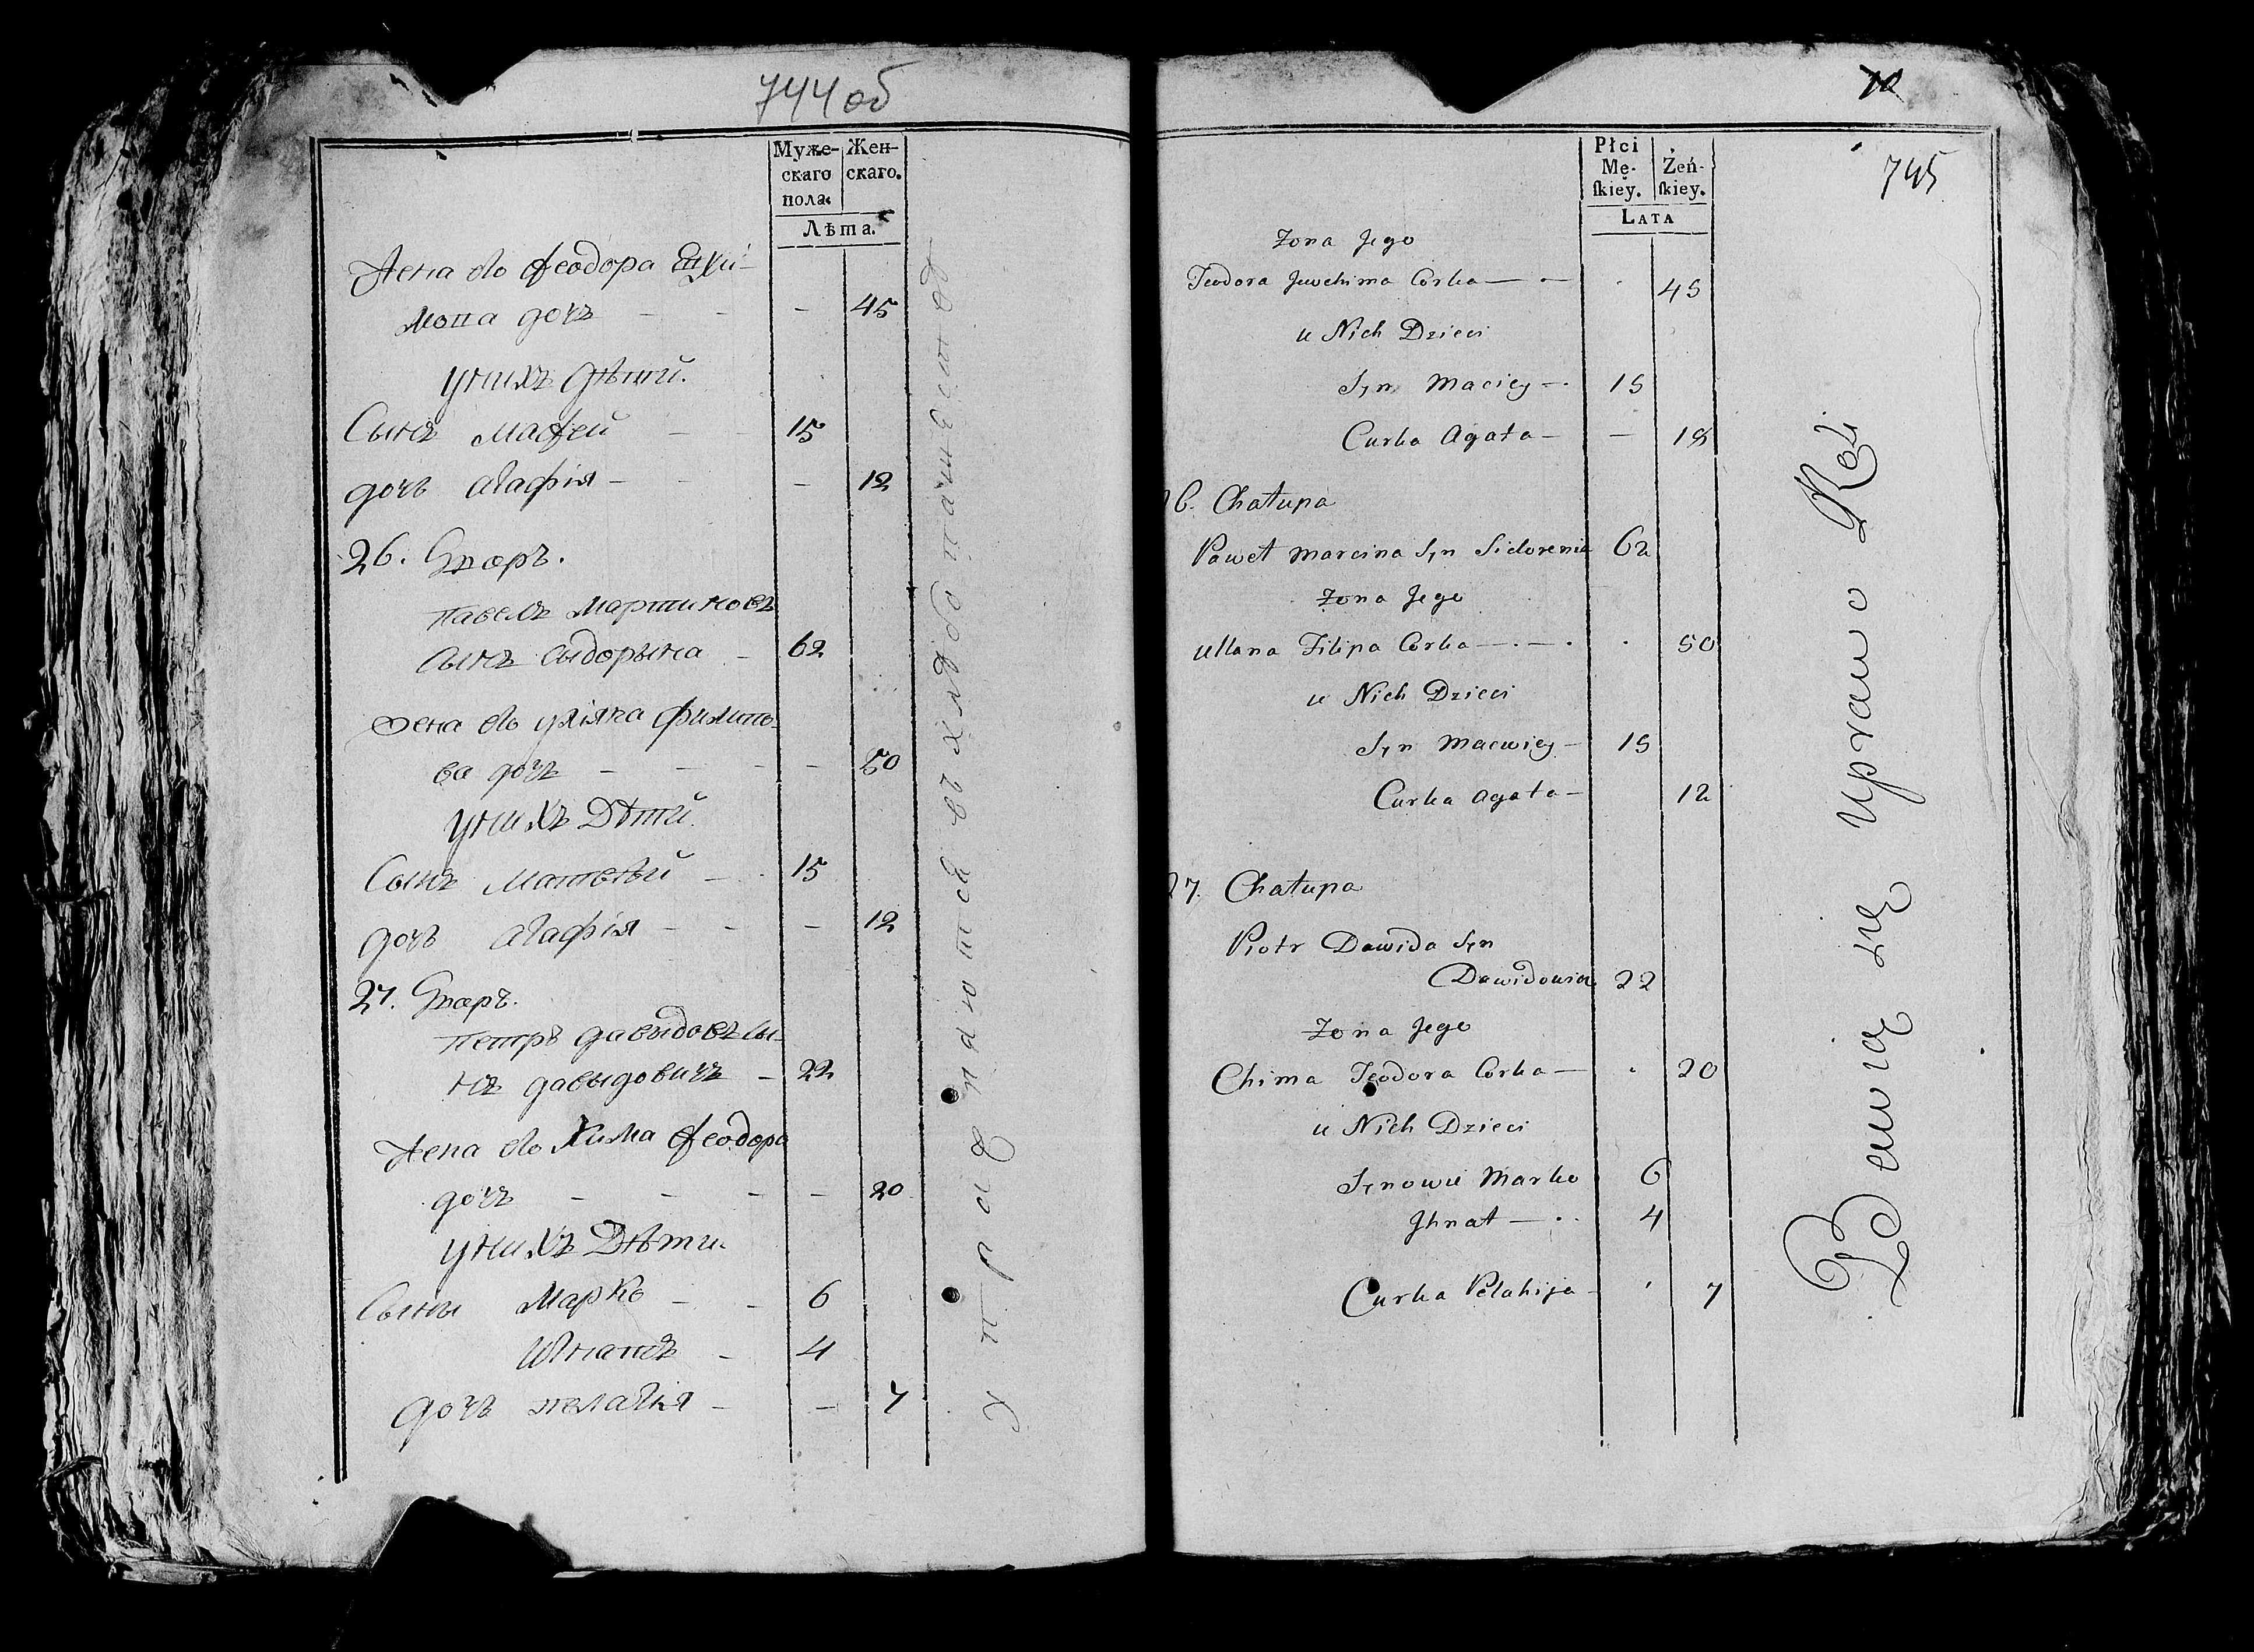 744 об
Муже-
скаго
пола.
Жен-
скаго.
Лѣта.
Жена его Феодора
мона дочь - - - 45
У нихъ дѣтей.
Сынъ Мафей - - 15
дочь Агафія - - - 12
26. Дворъ.
Павелъ Мартиновъ
сынъ Сыдорына - 62
Жена его Уліяна Филипо-
ва дочь - - - - 50
У нихъ Дѣтей
Сынъ Матвѣй - - 15
дочь Агафія - - - 12
27. Дворъ.
Петръ Давыдовъ сы-
нъ Давыдовичъ - 22
Жена его Хима Феодора
дочь - - - - 20
У нихъ Дѣти.
Сыны Марко - - 6
Игнатъ - 4
дочь Пелагія - - 7
упражняются въ хлѣбопашествѣ
10
745
Płci
Mę-
ſkiey.
Żeń-
ſkiey.
LATA
Żona Jego
Teodora Juchima Corka — - . 45
u Nich Dzieci
Syn Maciey - . 15
Curka Agata - —
26. Chałupa
Paweł Marcina Syn 62
Żona Jego
Ullana Filipa Corka — . — . . 50
u Nich Dzieci
Syn Macwiey - 15
Curka Agata - 12
27. Chałupa
Piotr Dawida Syn
Dawidowicz 22
Żona Jego
Chima Teodora Corka — . 20
u Nich Dzieci
Synowie Marko 6
Jhnat — . . 4
Curka Pelahija - 7
Bawią się Uprawą Roli